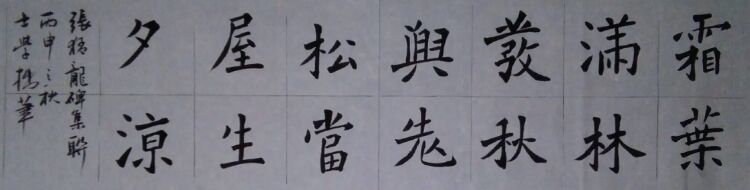 霜葉
滿林
發秋
興老
松當
屋生
夕涼
張猛龍碑集聯
丙申之秋
士學